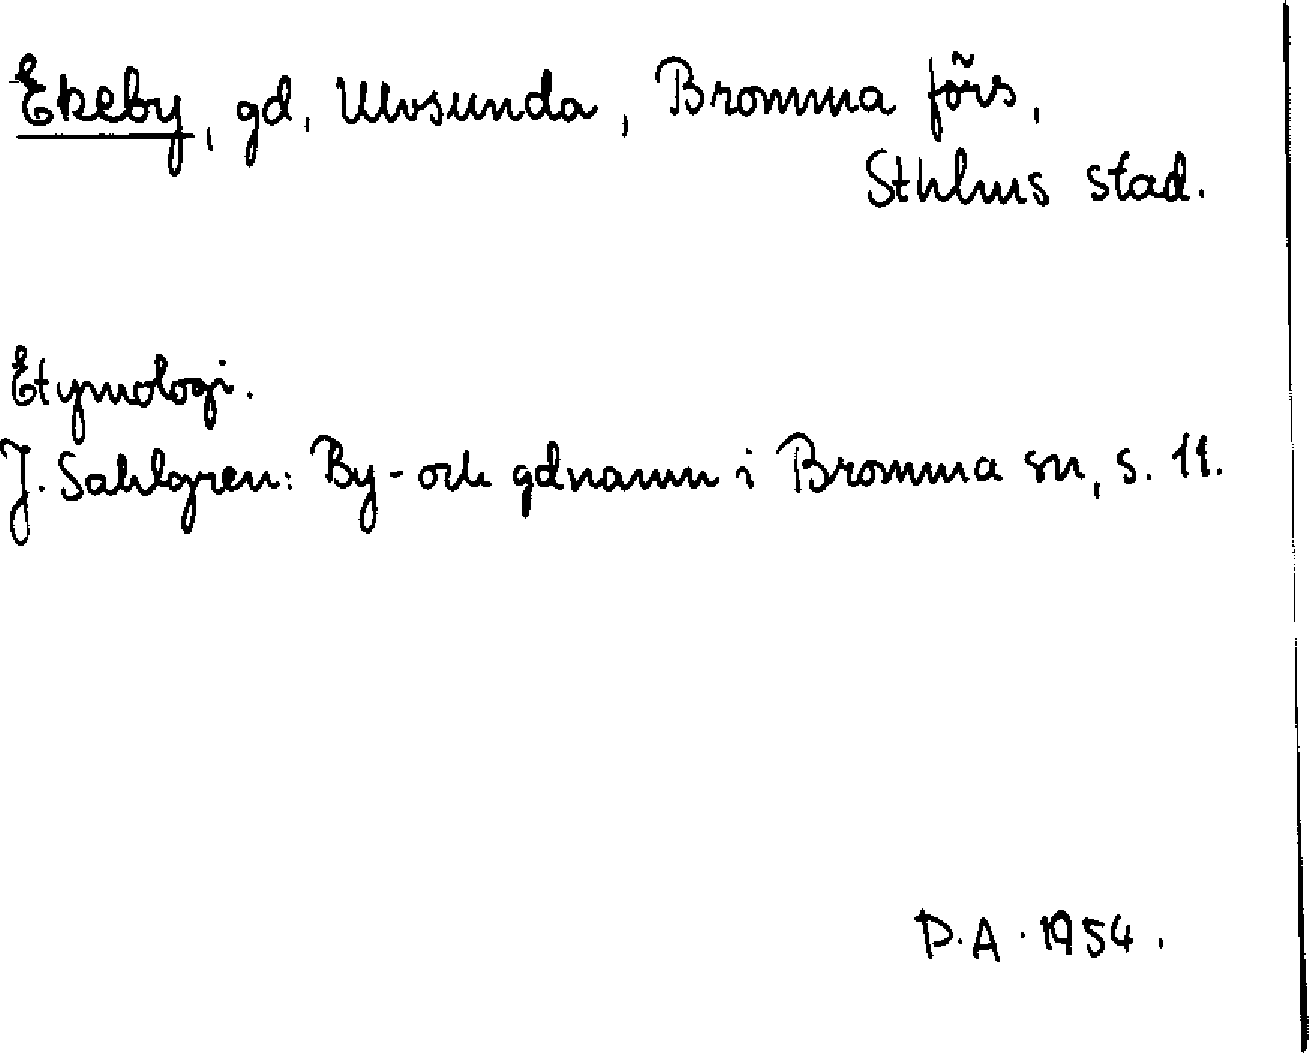 Ekeby, gd, Ulvsunda, Bromma förs,
Sthlms stad.
Etymologi.
J. Sahlgren: By- och gdnamn i Bromma sn, s. 11.
D.A. 1954.